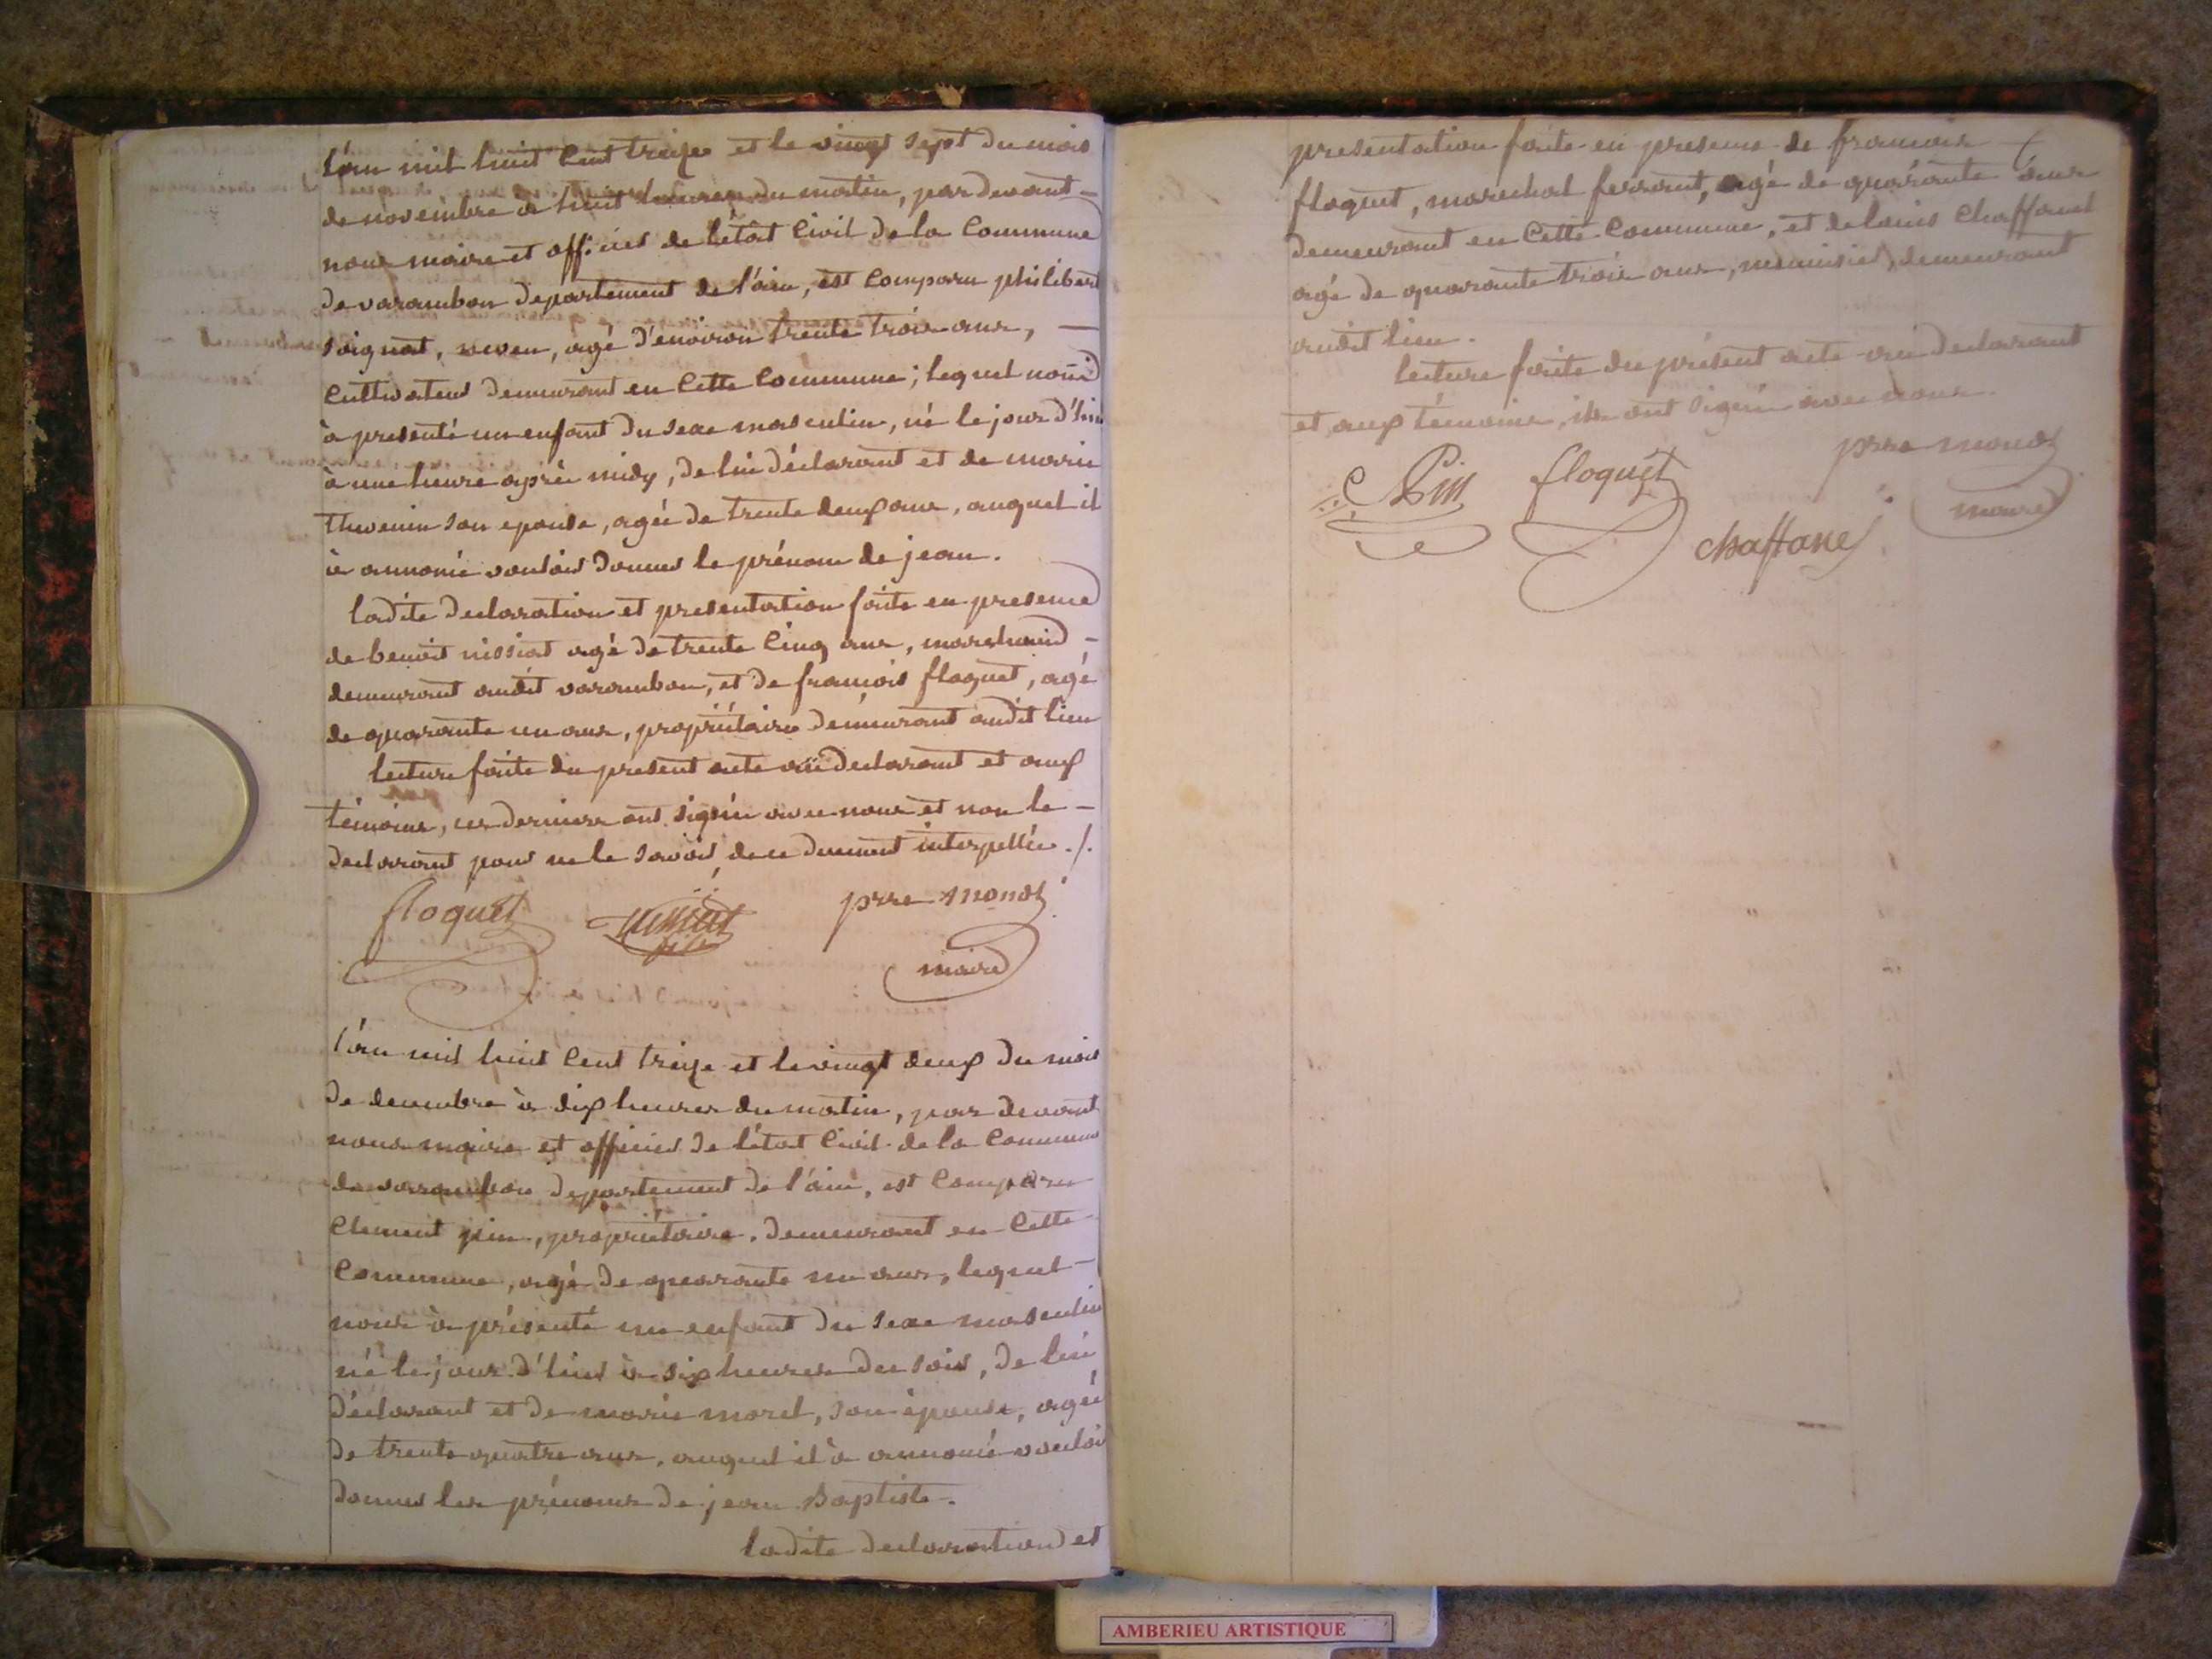 l'an mil huit cent treize et le vingt sept du mois
de novembre à huit heures du matin, par devant
nous maire et officier de l'état Civil de la Commune
de varambon departement de l'ain, est Comparu philibert
soignat, neveu, agé d'environ trente trois ans,
Cultivateur demeurant en Cette Commune; lequel nous
à presenté un enfant du sexe masculin, né le jour d'hier
à une heure après midy, de lui déclarant et de marie
thevenin son epouse, agée de trente deux ans, auquel il
à annoncé vouloir donner le prénom de jean.
ladite declaration et presentation faite en presence
de benoit nissiat agé de trente Cinq ans, marchand
demeurant audit varambon, et de françois floquet, agé
de quarante un ans, propriétaire demeurant audit lieu
lecture faite du present acte au declarant et aux
témoins, ces derniers ont signés avec nous et non le
declarant pour ne le savoir, de ce duement interpellé ./.
floquet nissiat fils prre monod
maire
l'an mil huit Cent treize et le vingt deux du mois
de decembre à dix heures du matin, par devant
nous maire et officier de l'état Civil de la Commune
de varambon departement de l'ain, est Comparu
Clement pin, propriétaire, demeurant en Cette
Commune, agé de quarante un ans, lequel
nous à présenté un enfant du sexe masculin
né le jour d'hier à six heures du soir, de lui
déclarant et de marie morel, son épouse, agée
de trente quatre ans, auquel il à annoncé vouloir
donner les prénoms de jean Baptiste.
ladite declaration et
presentation faite en presence de francois
floquet, marechal ferrant, agé de quarante ans
demeurant en Cette Commune, et de louis Chaffard
agé de quarante trois ans, menuisier, demeurant
audit lieu.
lecture faite du présent acte au declarant
et aux témoins, ils ont signé avec nous.
C Pin floquet prre monod
chaffane maire
AMBERIEU ARTISTIQUE